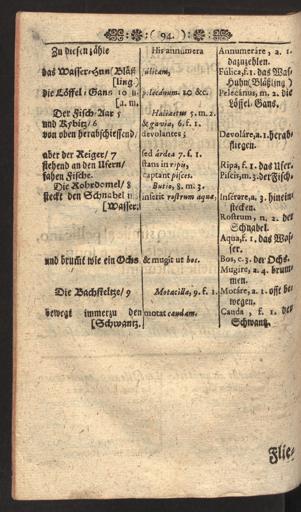 ( 94. )
Zu diesen zähle
das Wasser-Hun (Bläß
[ling.)
die Löffel-Gans 10 u
[a. m.
Der Fisch-Aar 5
und Kybitz/ 6
von oben herabschiessend/
aber der Reiger/ 7
stehend an den Ufern/
fahen Fische.
Die Rohrdomel/ 8
steckt den Schnabel in
[Wasser/
und brumt wie ein Ochs
Die Bachsteltze/ 9
bewegt immerzu den
[Schwantz.
His annumera
fúlicam,
pelecánum. 10 &c.
Haliaetus 5. m. 2.
& gavia, 6. f. 1.
devolantes;
sed árdea 7. f. 1.
stans in ripa,
captant pisces.
Butio, 8. m. 3.
inserit rostrum aquæ,
& mugit ut bos.
Motacilla, 9. f. 1.
motat caudam.
Annumeráre, a. 1.
dazuzehlen.
Fúlica, f. 1. das Was-
Huhn(Bläßling)
Pelecánus, m. 2. die
Löffel-Gans.
Devoláre, a. 1. herab-
fliegen.
Ripa, f. 1. das Ufer.
Piscis, m. 3. der Fisch.
Inserere, a. 3. hinein-
stecken.
Rostrum, n. 2. der
Schnabel.
Aqua, f. 1. das Was-
ser.
Bos, c. 3. der Ochs.
Mugire, a. 4. brum-
men.
Motáre, a. 1. offt be-
wegen.
Cauda, f. 1. der
Schwantz.
Flie-